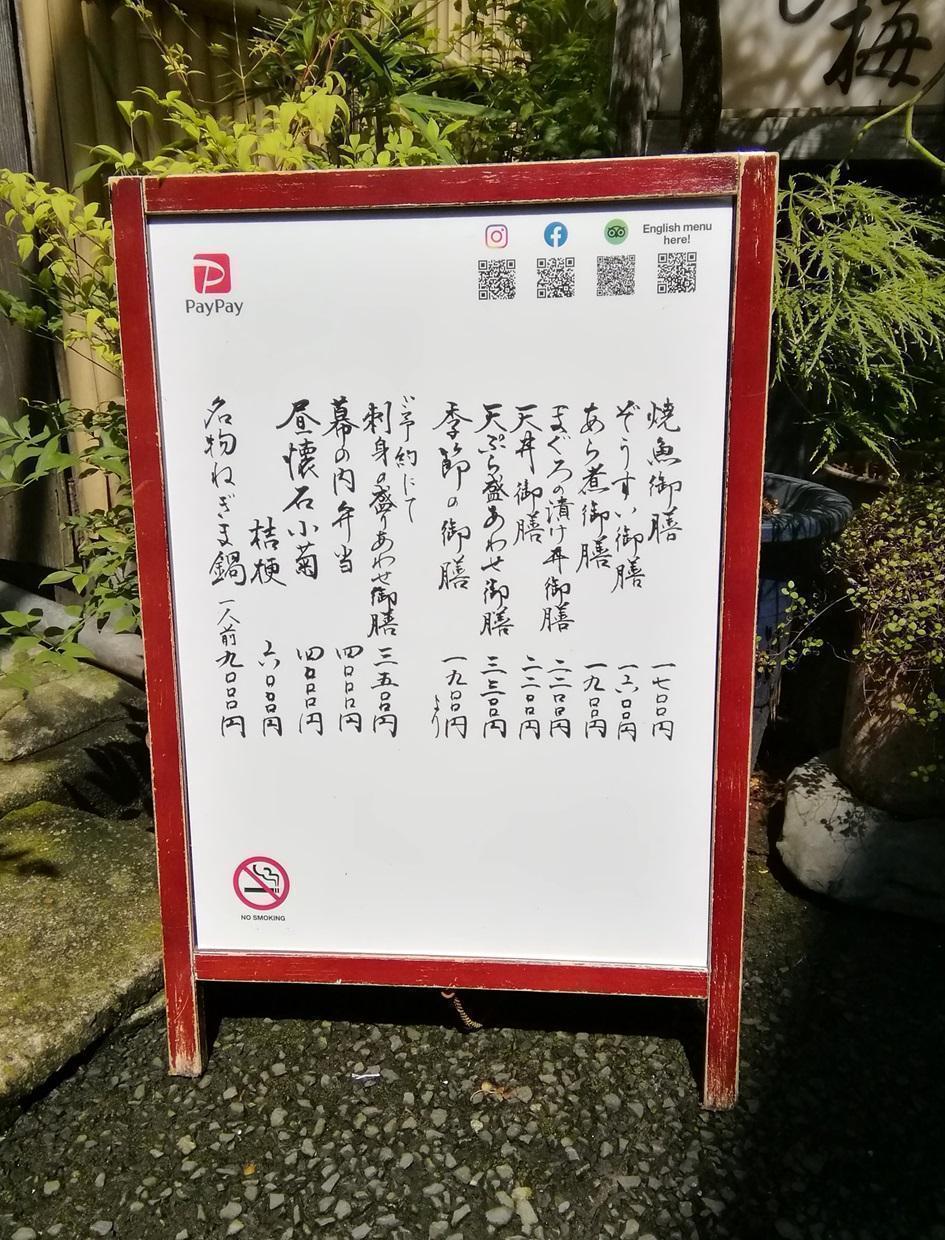 梅
English menu
here!
PayPay
焼魚御膳 一七〇〇円
ぞうすい御膳 一六〇〇円
あら煮御膳 一九〇〇円
まぐろの漬け丼御膳 二二〇〇円
天丼御膳 二二〇〇円
天ぷら盛あわせ御膳 三三〇〇円
季節の御膳 一九〇〇円より
ご予約にて
刺身の盛りあわせ御膳 三五〇〇円
幕の内弁当 四〇〇〇円
昼懐石小菊 四〇〇〇円
桔梗 六〇〇〇円
名物ねぎま鍋 一人前九〇〇〇円
NO SMOKING